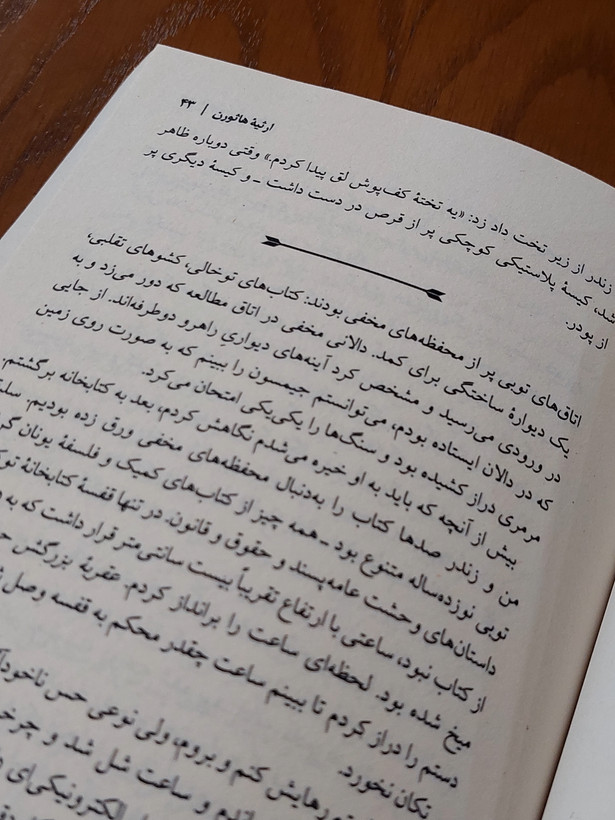 ارثیهٔ هاثورن | ۴۳
زندر از زیر تخت داد زد: «یه تختهٔ کف‌پوش لق پیدا کردم.» وقتی دوباره ظاهر
شد، کیسهٔ پلاستیکی کوچکی پر از قرص در دست داشت - و کیسهٔ دیگری پر
از پودر.
اتاق‌های توبی پر از محفظه‌های مخفی بودند: کتاب‌های توخالی، کشوهای تقلبی،
یک دیوارهٔ ساختگی برای کمد. دالانی مخفی در اتاق مطالعه که دور می‌زد و به
در ورودی می‌رسید و مشخص کرد آینه‌های دیواریِ راهرو دوطرفه‌اند. از جایی
که در دالان ایستاده بودم، می‌توانستم جیمسون را ببینم که به صورت روی زمین
مرمری دراز کشیده بود و سنگ‌ها را یکی‌یکی امتحان می‌کرد.
بیش از آنچه که باید به او خیره می‌شدم نگاهش کردم، بعد به کتابخانه برگشتم.
من و زندر صدها کتاب را به‌دنبال محفظه‌های مخفی ورق زده بودیم.
توبی نوزده‌ساله متنوع بود - همه چیز از کتاب‌های کمیک و فلسفهٔ یونان
داستان‌های وحشت عامه‌پسند و حقوق و قانون. در تنها قفسهٔ کتابخانهٔ
از کتاب نبود، ساعتی با ارتفاع تقریباً بیست سانتی‌متر قرار داشت که به
میخ شده بود. لحظه‌ای ساعت را برانداز کردم. عقربهٔ بزرگش
دستم را دراز کردم تا ببینم ساعت چقدر محکم به قفسه وصل
تکان نخورد.
رهایش کنم و بروم، ولی نوعی حس
و ساعت شل شد و
الکترونیکی‌ای